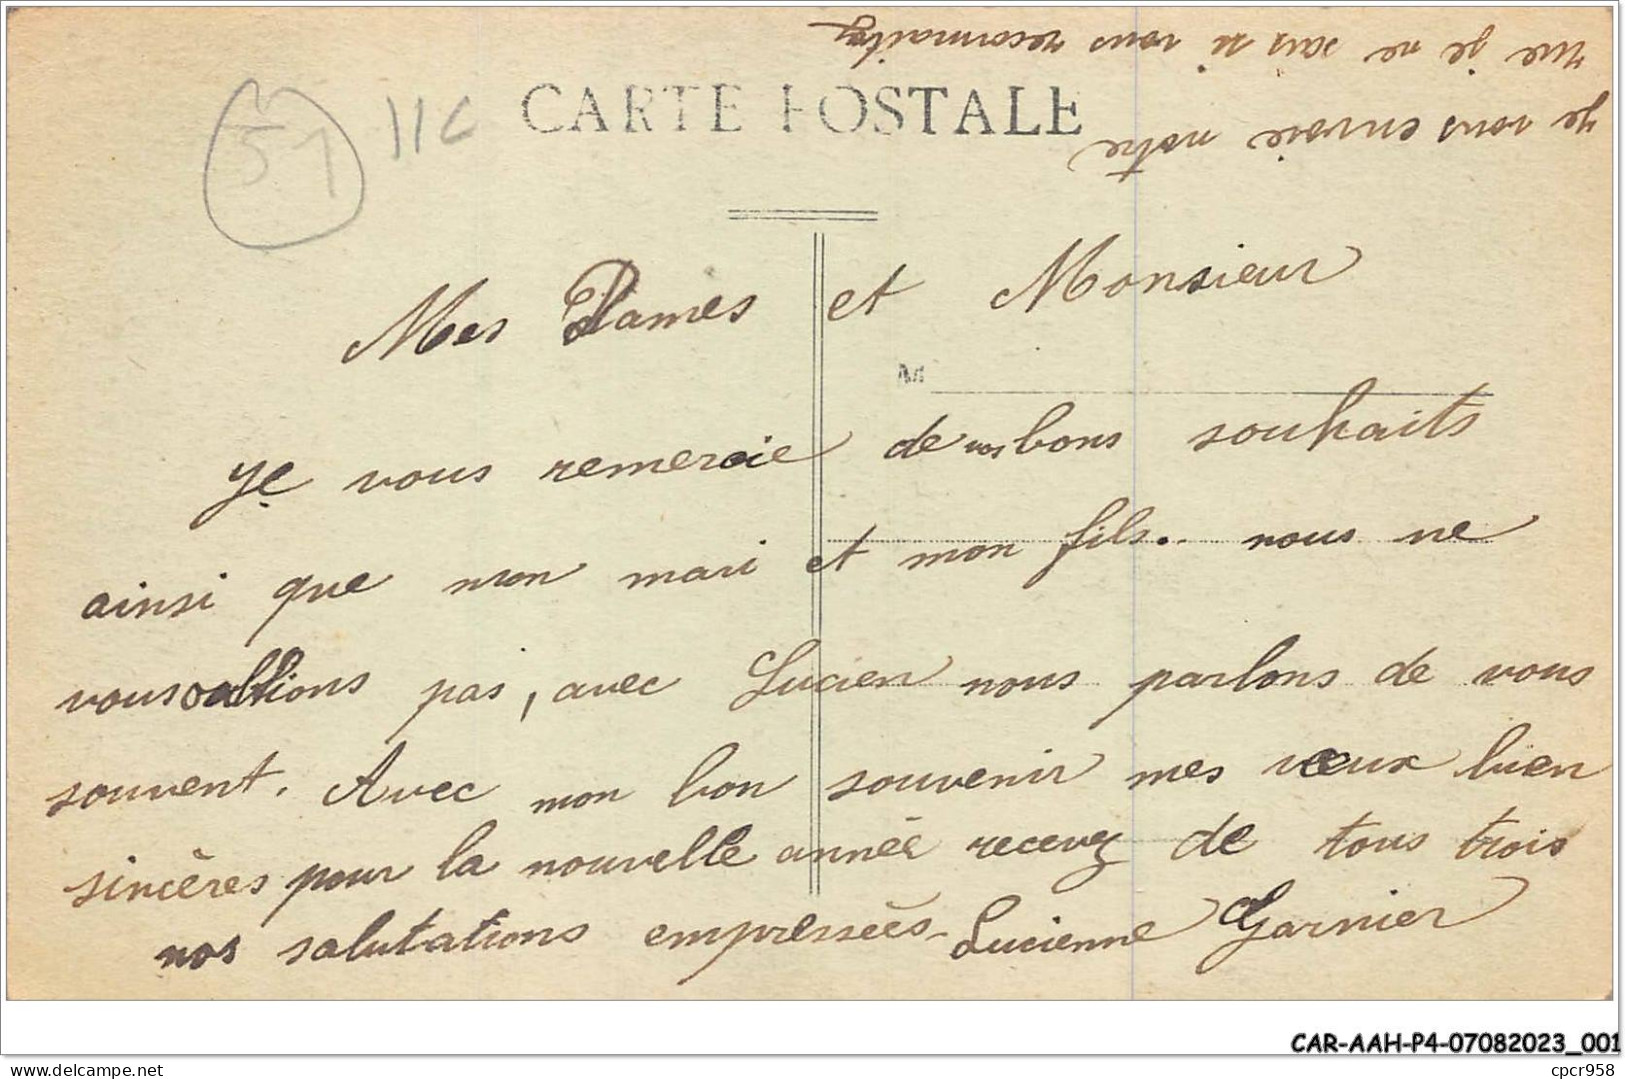 Je vous envoie notre
rue je ne sais si vous reconnaitrez
CARTE POSTALE
51
11C
Mes Dames et Monsieur
M
Je vous remercie de vos bons souhaits
ainsi que mon mari et mon fils.. nous ne
vous oublions pas, avec Lucien nous parlons de vous
souvent. Avec mon bon souvenir mes vœux bien
sincères pour la nouvelle année recevez de tous trois
nos salutations empressées - Lucienne Garnier
CAR-AAH-P4-07082023_001
delcampe.net
cpcr958